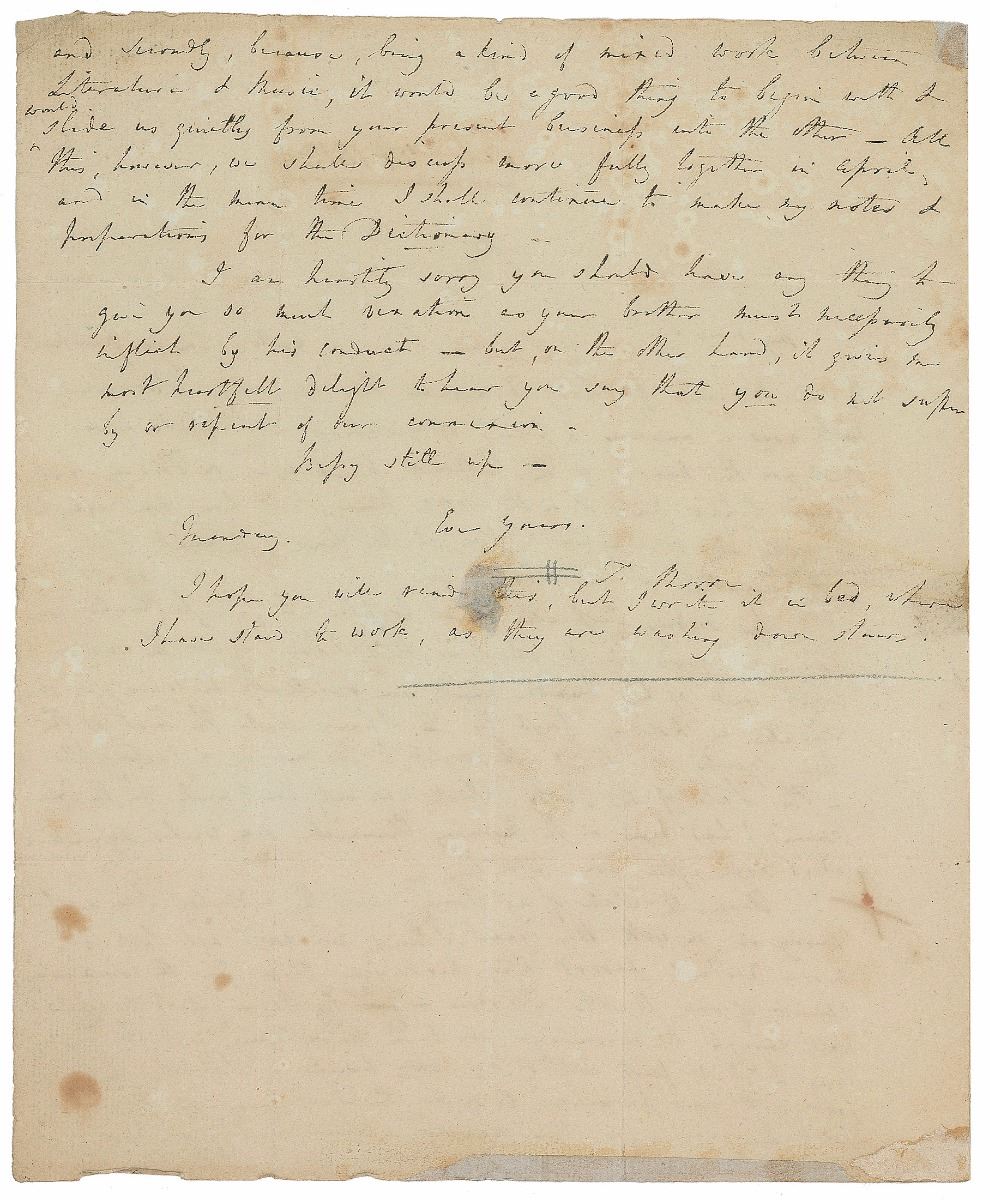 and secondly, because, being a kind of mixed work between
Literature & Music, it would be a good thing to begin with &
would
slide us quietly from your present business into the other — All
this, however, we shall discuss more fully together in April,
and in the mean time I shall continue to make my notes &
preparations for the Dictionary —
I am heartily sorry you should have any thing to
give you so much vexation as your brother must necessarily
inflict by his conduct — but, on the other hand, it gives me
most heartfelt delight to hear you say that you do not suffer
by or repent of our connexion —
Bessy still up —
Ever yours.
T. Moore
I hope you will read this, but I write it in bed, where
I have staid to work, as they are washing down stairs.